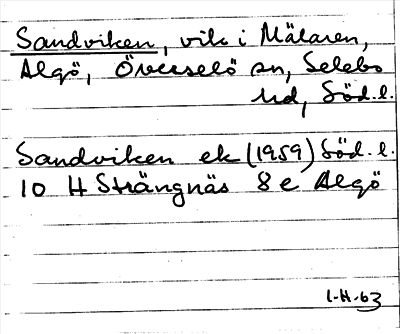 Sandviken, vik i Mälaren,
Algö, Överselö sn, Selebo
hd, Söd.l.
Sandviken ek (1959) Söd.l.
10 H Strängnäs 8 e Algö
1-H-63